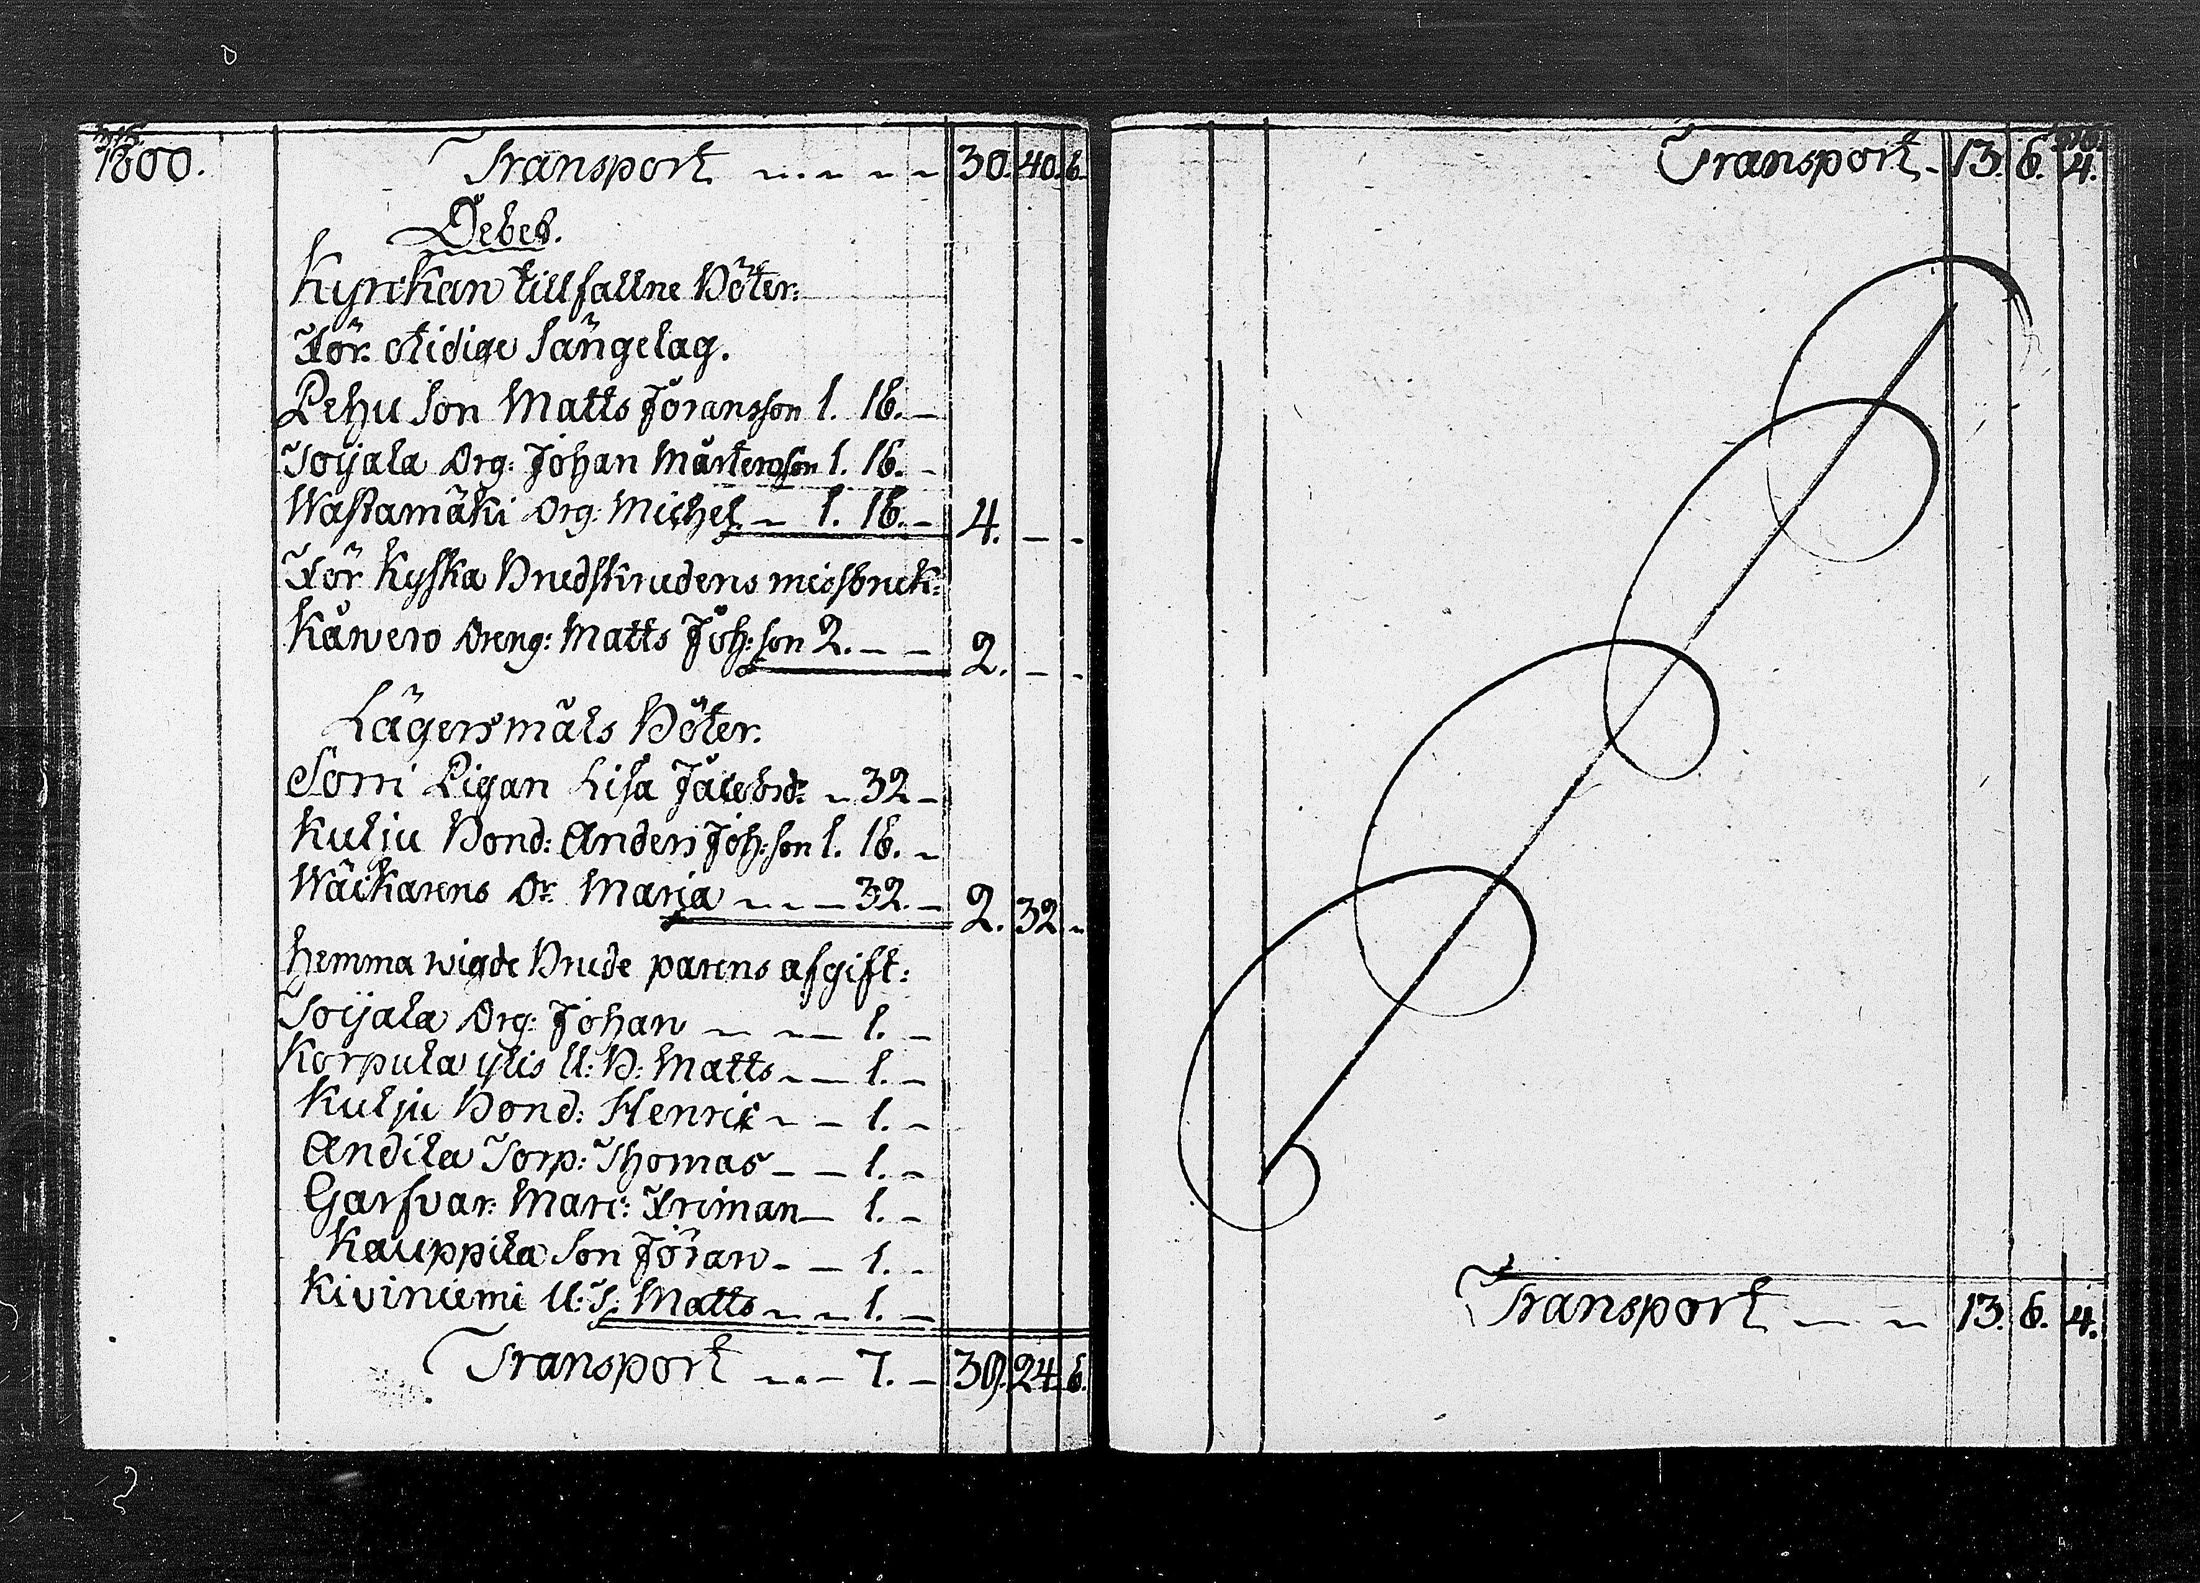 1800. Transport 30. 40. 6.
Debet.
Kyrckan tillfallne Böter:
För otidige Sängelag.
Pehu Son Matts Jöransson 1. 16. –
Toijala Drg: Johan Mårtensson 1. 16. –
Wastamäki Drg: Michel – 1. 16. – 4. – –
För Kyska Brudskrudens missbruk:
Kåwero Dreng: Matts Joh:son 2. – – 2. – –
Lägersmåls Böter.
Sorri Pigan Lisa Jacobsd: – 32 –
Kulju Bond: Anders Joh:son 1. 16. –
Wäckarens Dr. Maria – – – 32. – 2. 32. –
Hemma wigde Brude parens afgift:
Toijala Drg: Johan – – – 1. –
Korpula ylis U: B: Matts – – 1. –
Kulju Bond: Henric – – 1. –
Andila Torp: Thomas – – 1. –
Garfvar: Marc: Friman – 1. –
Kauppila Son Jöran – – 1. –
Kiviniemi U: S: Matts – – 1. –
Transport – – – 7. – 39. 24. 6.
Transport – 13. 6. 4.
Transport – – 13. 6. 4.